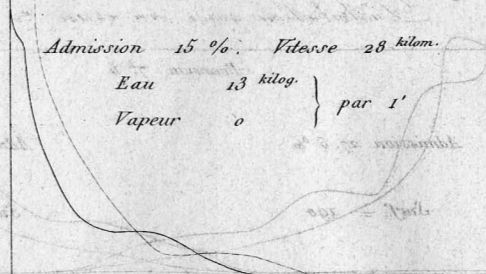 Admission 15 %. Vitesse 28 kilom.
Eau 13 kilog.
Vapeur 0
par 1'